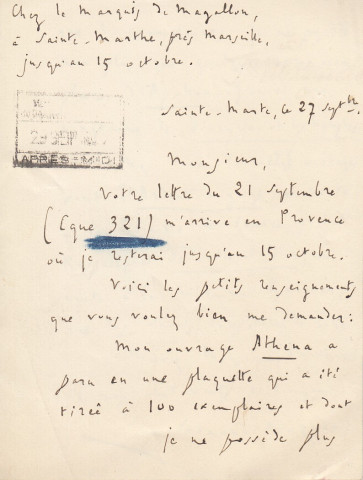 Chez le Marquis de Magallon,
à Sainte-Marthe, près Marseille,
jusqu'au 15 octobre.
APRÈS-MIDI
Sainte-Marte, le 27 Septbre.
Monsieur,
Votre lettre du 21 Septembre
(Cque 321) m'arrive en Provence
où je resterai jusqu'au 15 octobre.
Voici les petits renseignements
que vous voulez bien me demander:
Mon ouvrage Athena a
paru en une plaquette qui a été
tirée à 100 exemplaires et dont
je ne possède plus